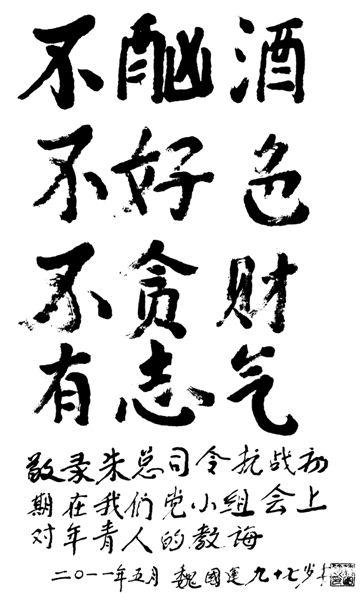 不酗酒
不好色
不贪财
有志气
敬录朱总司令抗战初
期在我们党小组会上
对年青人的教诲
二〇一一年五月 魏國運 九十七岁